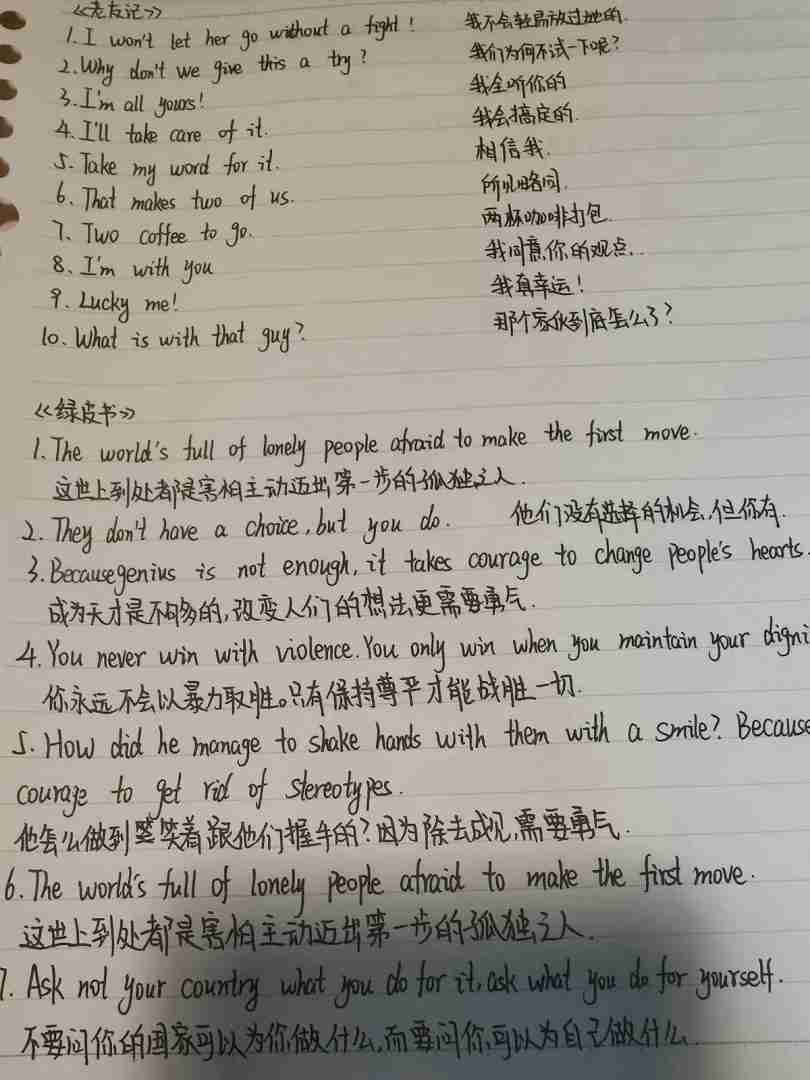 《老友记》
1. I won't let her go without a fight! 我不会轻易放过她的.
2. Why don't we give this a try? 我们为何不试一下呢?
3. I'm all yours! 我全听你的
4. I'll take care of it. 我会搞定的.
5. Take my word for it. 相信我.
6. That makes two of us. 所见略同.
7. Two coffee to go. 两杯咖啡打包.
8. I'm with you 我同意你的观点.
9. Lucky me! 我真幸运!
10. What is with that guy? 那个家伙到底怎么了?
《绿皮书》
1. The world's full of lonely people afraid to make the first move.
这世上到处都是害怕主动迈出第一步的孤独之人.
2. They don't have a choice, but you do. 他们没有选择的机会,但你有.
3. Because genius is not enough, it takes courage to change people's hearts.
成为天才是不够的,改变人们的想法更需要勇气.
4. You never win with violence. You only win when you maintain your digni
你永远不会以暴力取胜。只有保持尊严才能战胜一切.
5. How did he manage to shake hands with them with a smile? Because
courage to get rid of stereotypes.
他怎么做到笑着跟他们握手的?因为除去成见,需要勇气.
6. The world's full of lonely people afraid to make the first move.
这世上到处都是害怕主动迈出第一步的孤独之人.
7. Ask not your country what you do for it, ask what you do for yourself.
不要问你的国家可以为你做什么,而要问你可以为自己做什么.